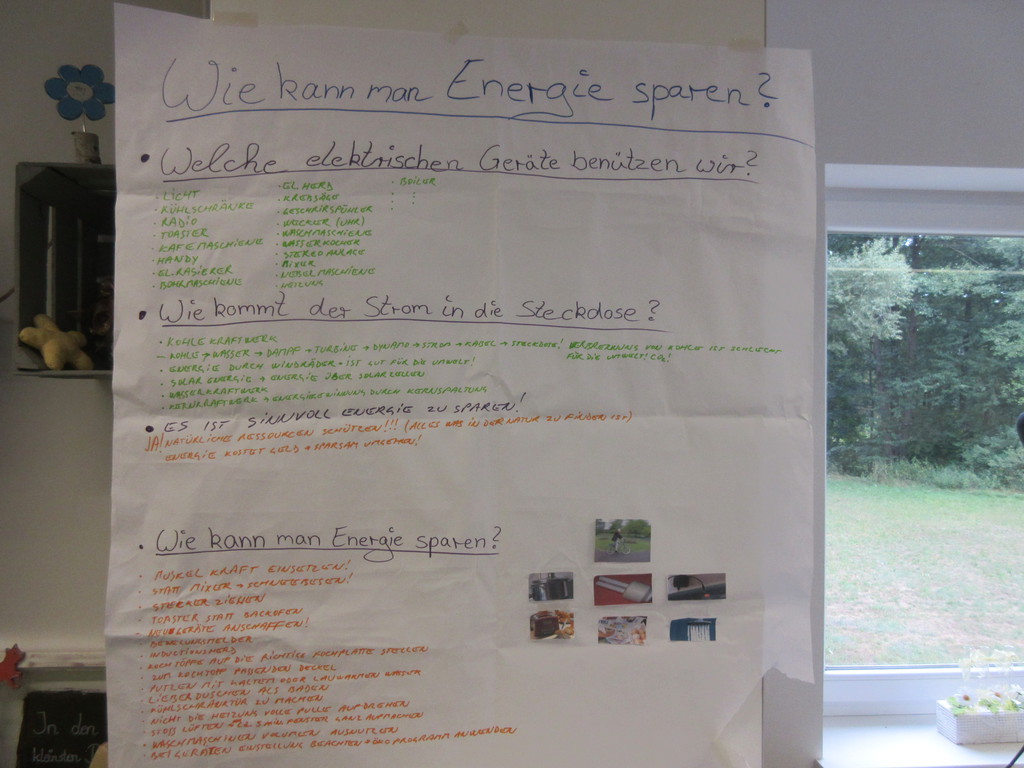 Wie kann man Energie sparen?
• Welche elektrischen Geräte benützen wir?
· LICHT
· KÜHLSCHRÄNKE
· RADIO
· TOASTER
· KAFEMASCHIENE
· HANDY
· EL.RASIERER
· BOHRMASCHIENE
· EL HERD
· KREBSÄGE
· GESCHRIRSPÜHLER
· WECKER (UHR)
· WASCHMASCHIENE
· WASSERKOCHER
· STEREOANLAGE
· MIXER
· NEBELMASCHIENE
· HEIZUNG
· BOILER
• Wie kommt der Strom in die Steckdose?
· KOHLE KRAFTWERK
– KOHLE → WASSER → DAMPF → TURBINE → DYNAMO → STROM → KABEL → STECKDOSE! VERBRENNUNG VON KOHLE IST SCHLECHT
FÜR DIE UMWELT! CO2!
· ENERGIE DURCH WINDRÄDER · IST GUT FÜR DIE UMWELT!
· SOLAR ENERGIE → ENERGIE ÜBER SOLARZELLEN
· WASSERKRAFTWERK
· KERNKRAFTWERK → ENERGIEGEWINNUNG DURCH KERNSPALTUNG
• ES IST SINNVOLL ENERGIE ZU SPAREN!
JA! NATÜRLICHE RESSOURCEN SCHÜTZEN!!! (ALLES WAS IN DER NATUR ZU FINDEN IST)
ENERGIE KOSTET GELD → SPARSAM UMGEHEN!
• Wie kann man Energie sparen?
· MUSKEL KRAFT EINSETZEN!
· STATT MIXER → SCHNEEBESEN!
· STECKER ZIEHEN
· TOASTER STATT BACKOFEN
· NEUGERÄTE ANSCHAFFEN!
· BEWEGUNGSMELDER
· INDUKTIONSHERD
· KOCHTÖPFE AUF DIE RICHTIGE KOCHPLATTE STELLEN
· ZUM KOCHTOPF PASSENDEN DECKEL
· PUTZEN MIT KALTEM ODER LAUWARMEN WASSER
· LIEBER DUSCHEN ALS BADEN
· KÜHLSCHRANKTÜR ZU MACHEN
· NICHT DIE HEIZUNG VOLLE PULLE AUFDREHEN
· STOSS LÜFTEN 5 MIN FENSTER GANZ AUFMACHEN
· WASCHMASCHINEN VOLUMEN AUSNUTZEN
· BEI GERÄTEN EINSTELLUNG BEACHTEN → ÖKO PROGRAMM ANWENDEN
In den
kleinsten